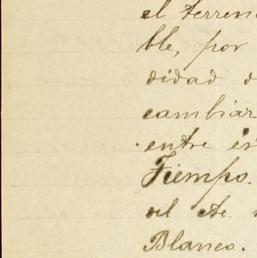 el terren
ble, por
didad d
cambiar
entre es
Tiempo.
del Ate.
Blanco.